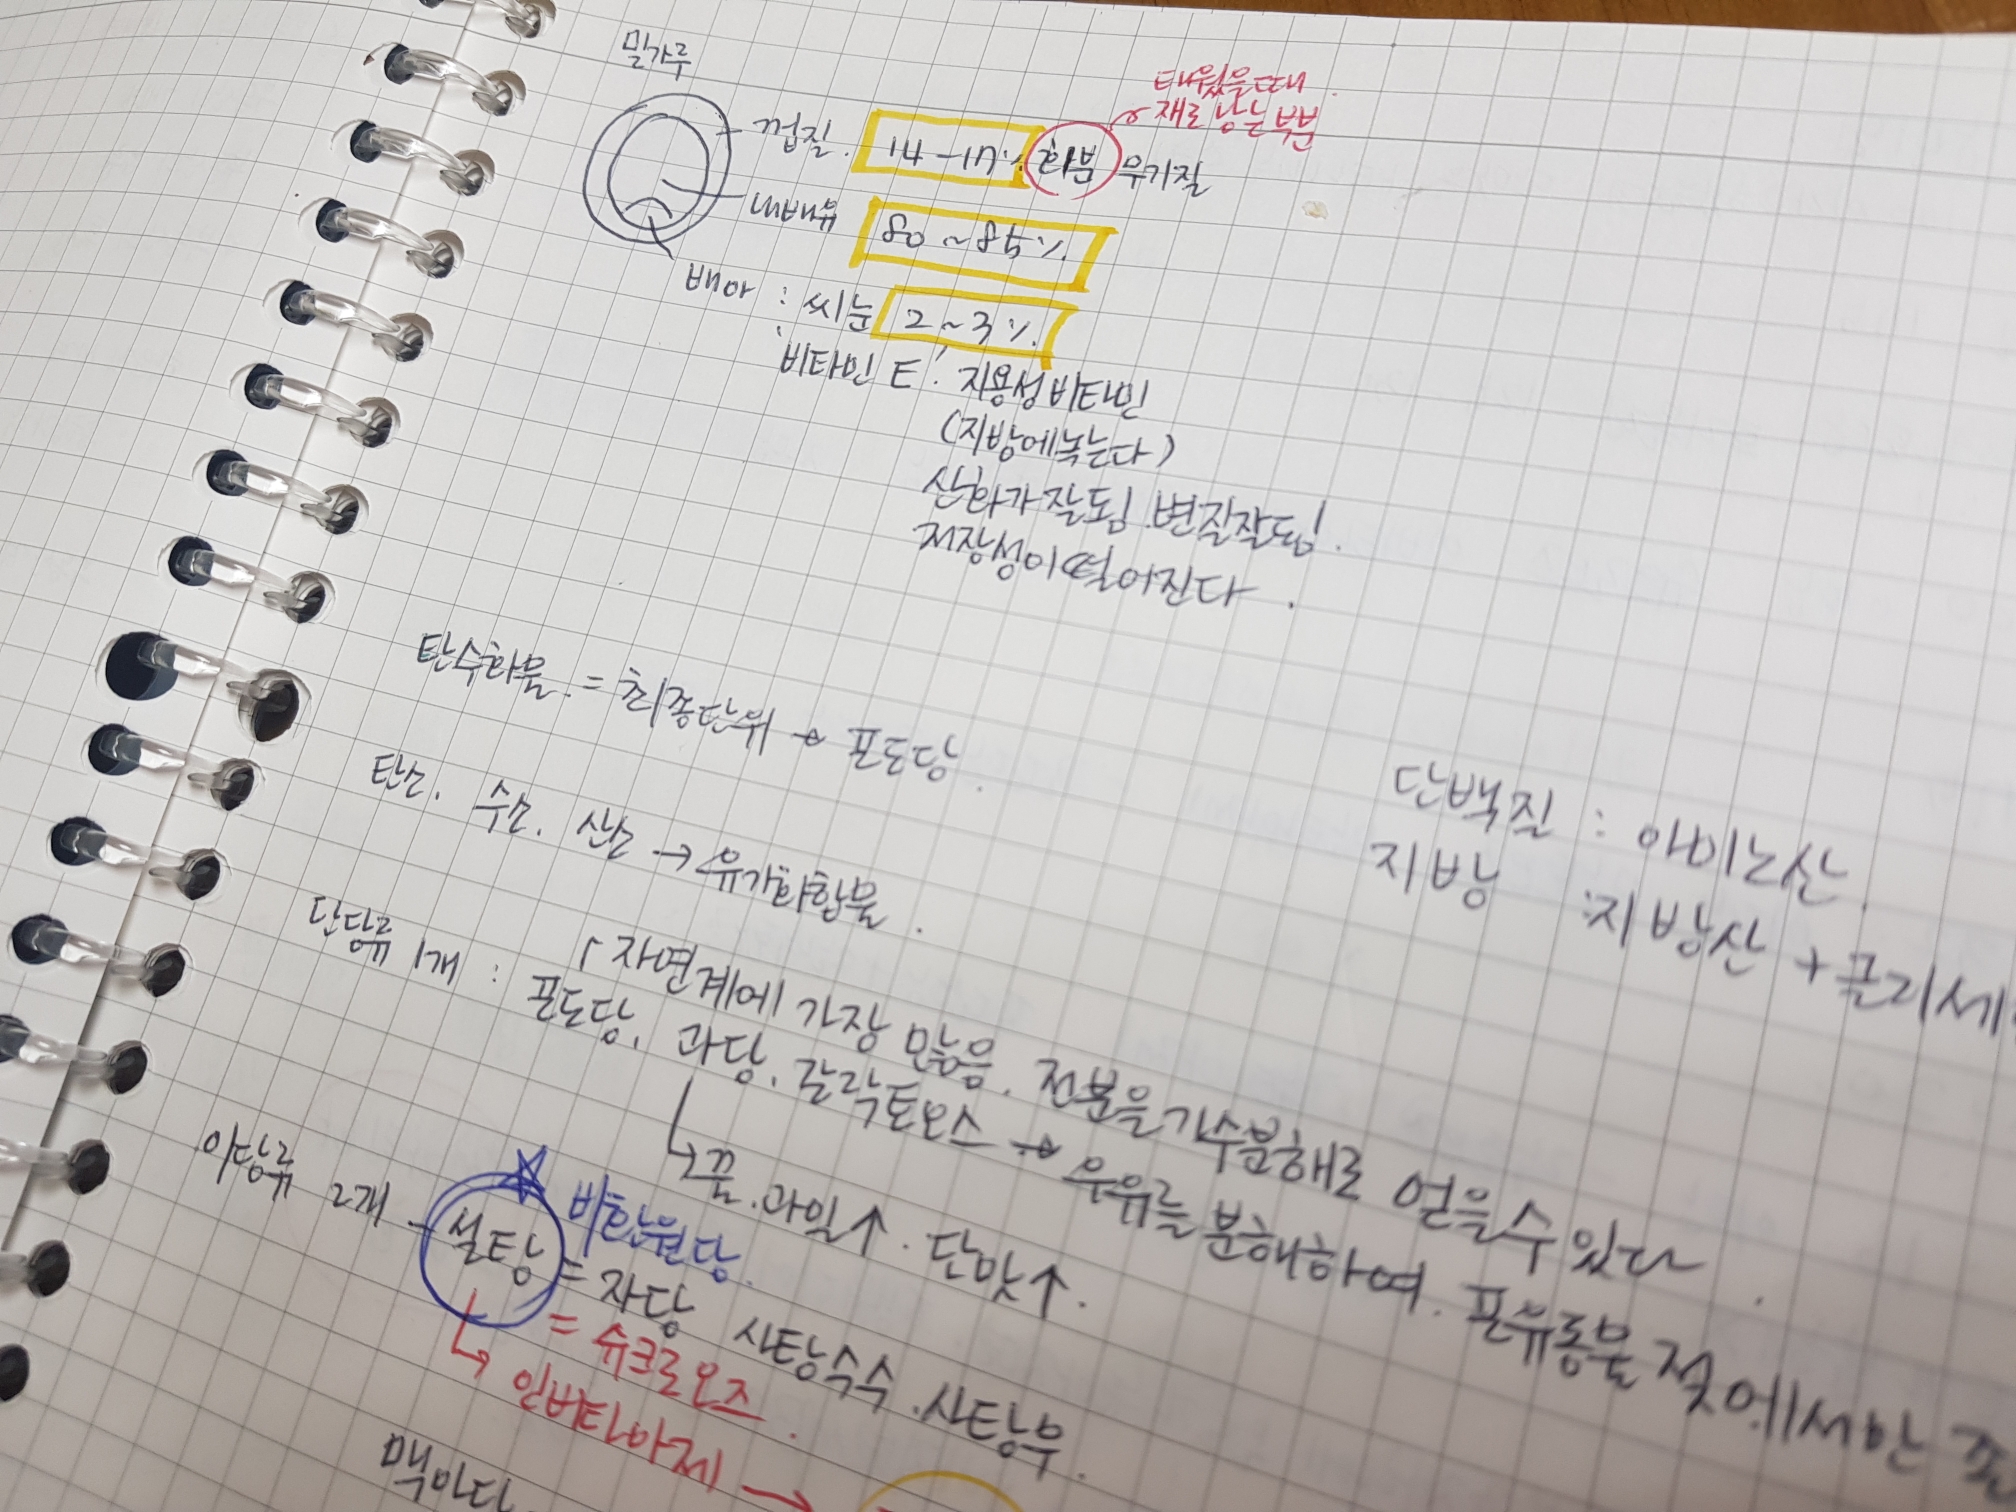 밀가루
태웠을때
재로 남는 부분
껍질. 14-17% 회분 무기질
배유 80~85%
배아 : 씨눈 2~3%
비타민 E : 지용성비타민
(지방에녹는다)
산화가 잘됨. 변질잘됨.
저장성이 떨어진다.
탄수화물. = 최종단위 → 포도당.
단백질 : 아미노산.
지방 : 지방산 + 글리세
탄소. 수소. 산소 → 유기화합물.
자연계에 가장 많음. 전분을 가수분해로 얻을수 있다.
단당류 1개 : 포도당, 과당, 갈락토오스 → 우유를 분해하여. 포유동물 젖에서만 존
꿀. 과일↑. 단맛↑.
비환원당.
이당류 2개 - 설탕 = 자당 사탕수수. 사탕무.
= 슈크로오즈.
인버타아제 →
맥아당